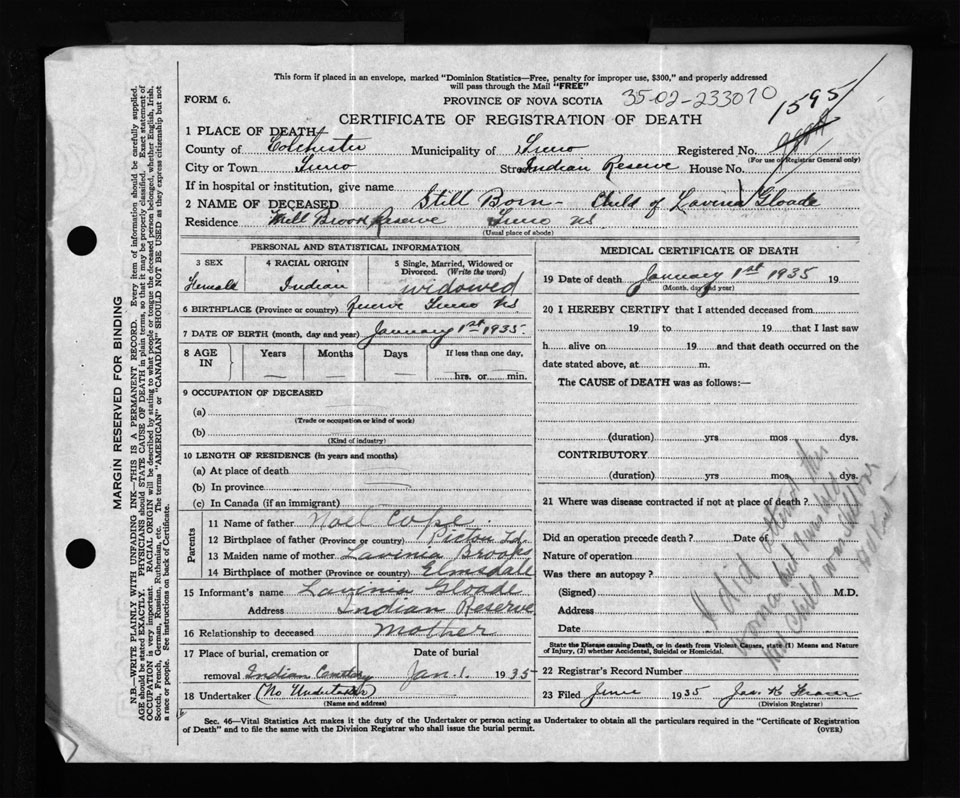 This form if placed in an envelope, marked "Dominion Statistics—Free, penalty for improper use, $300," and properly addressed
will pass through the Mail "FREE"
FORM 6.
PROVINCE OF NOVA SCOTIA
35-02-233070
1595
CERTIFICATE OF REGISTRATION OF DEATH
1 PLACE OF DEATH
County of Colchester Municipality of Truro Registered No.
(For use of Registrar General only)
City or Town Truro Street Indian Reserve House No.
If in hospital or institution, give name
2 NAME OF DECEASED Still Born - Child of Lavinia Gloade
Residence Mill Brook Reserve Truro NS
(Usual place of abode)
PERSONAL AND STATISTICAL INFORMATION
3 SEX
Female
4 RACIAL ORIGIN
Indian
5 Single, Married, Widowed or
Divorced. (Write the word)
widowed
6 BIRTHPLACE (Province or country) Reserve Truro NS
7 DATE OF BIRTH (month, day and year) January 1st 1935.
8 AGE IN
Years
Months
Days
If less than one day,
hrs. or min.
9 OCCUPATION OF DECEASED
(a)
(Trade or occupation or kind of work)
(b)
(Kind of industry)
10 LENGTH OF RESIDENCE (in years and months)
(a) At place of death
(b) In province
(c) In Canada (if an immigrant)
Parents
11 Name of father Noel Cope
12 Birthplace of father (Province or country) Pictou Ld.
13 Maiden name of mother Lavinia Brooks
14 Birthplace of mother (Province or country) Elmsdale
15 Informant's name Lavinia Gloade
Address Indian Reserve
16 Relationship to deceased mother
17 Place of burial, cremation or
removal Indian Cemetery
Date of burial
Jan. 1. 1935-
18 Undertaker (No Undertaker)
(Name and address)
MEDICAL CERTIFICATE OF DEATH
19 Date of death January 1st 1935 19
(Month, day and year)
20 I HEREBY CERTIFY that I attended deceased from
19 to 19 that I last saw
h alive on 19 and that death occurred on the
date stated above, at m.
The CAUSE of DEATH was as follows:—
(duration) yrs mos dys.
CONTRIBUTORY
(duration) yrs mos dys.
21 Where was disease contracted if not at place of death?
Did an operation precede death? Date of
Nature of operation
Was there an autopsy?
(Signed) M.D.
Address
Date
I did attend this
woman
her Child was
State the Disease causing Death, or in death from Violent Causes, state (1) Means and Nature
of Injury, (2) whether Accidental, Suicidal or Homicidal.
22 Registrar's Record Number
23 Filed June 1935 Jas. H
(Division Registrar)
Sec. 46—Vital Statistics Act makes it the duty of the Undertaker or person acting as Undertaker to obtain all the particulars required in the "Certificate of Registration
of Death" and to file the same with the Division Registrar who shall issue the burial permit.
(OVER)
MARGIN RESERVED FOR BINDING
N.B.—WRITE PLAINLY WITH UNFADING INK—THIS IS A PERMANENT RECORD. Every item of information should be carefully supplied.
AGE should be stated EXACTLY. PHYSICIANS should STATE CAUSE OF DEATH in plain terms, so that it may be properly classified. Exact statement of
OCCUPATION is very important. RACIAL ORIGIN will be described by stating to what people or tongue the deceased person belonged, whether English, Irish,
Scotch, French, German, Russian, Ruthenian, etc. The terms "AMERICAN" or "CANADIAN" SHOULD NOT BE USED as they express citizenship but not
a race or people. See instructions on back of Certificate.